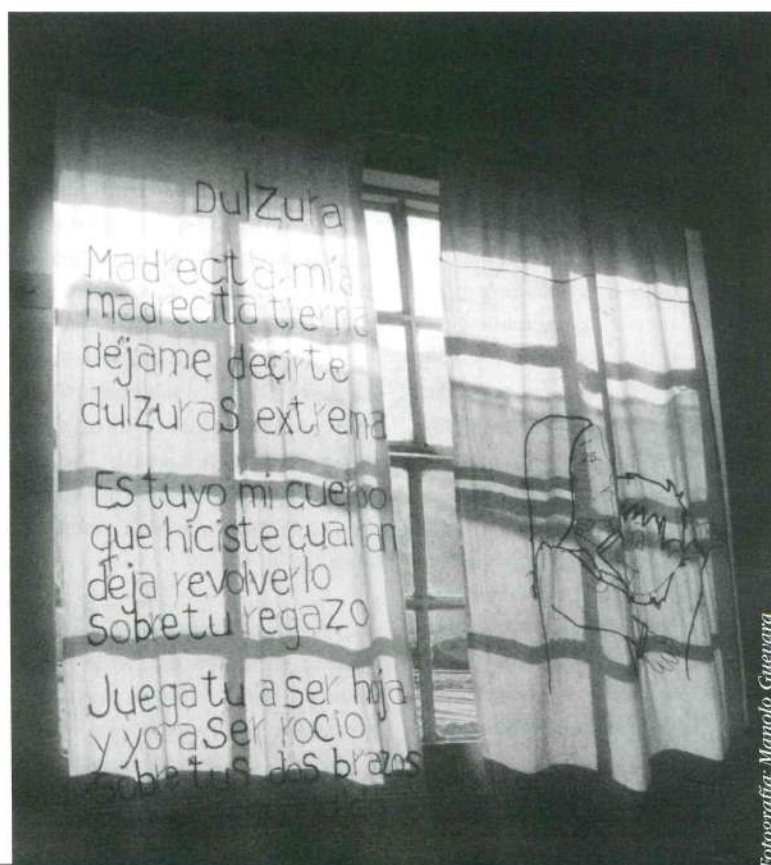 Dulzura
Madrecita mía
madrecita tierna
déjame decirte
dulzuras extrema
Es tuyo mi cuerpo
que hiciste cual
deja revolverlo
sobre tu regazo
Juega tu a ser hoja
y yo a ser rocio
sobre tus dos brazos
Fotografía: Manolo Guevara